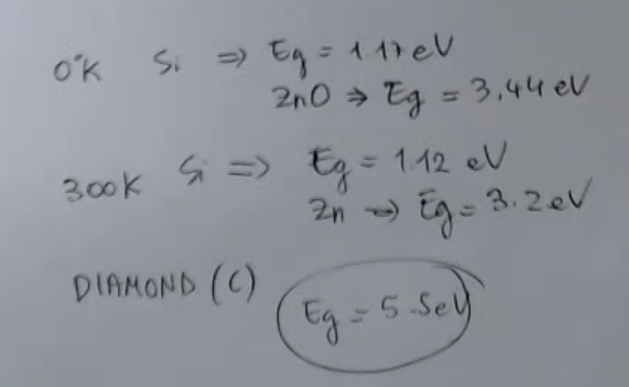 0°K Si ⇒ Eg = 1.17 eV
ZnO ⇒ Eg = 3.44 eV
300K Si ⇒ Eg = 1.12 eV
Zn → Eg = 3.2 eV
DIAMOND (C) Eg = 5.5 eV